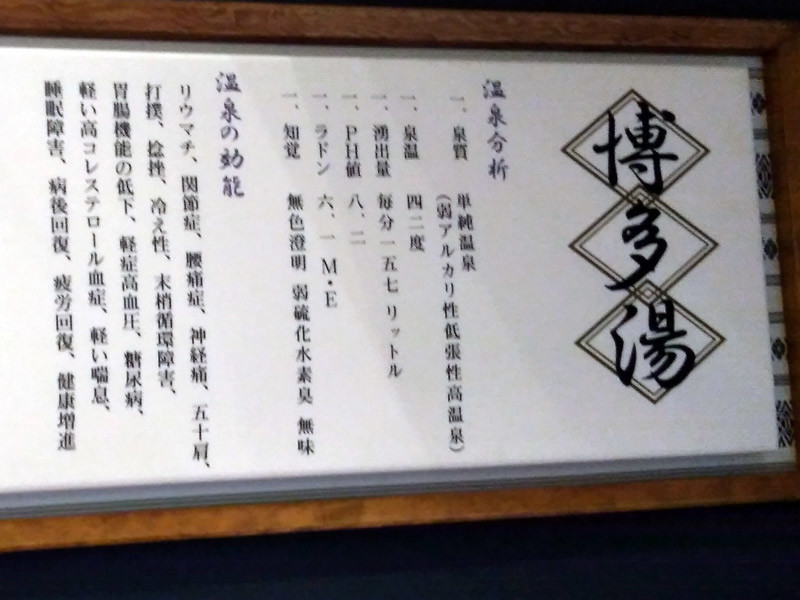 博多湯
温泉分析
一、泉質 単純温泉
(弱アルカリ性低張性高温泉)
一、泉温 四二度
一、湧出量 毎分一五七リットル
一、PH値 八、二
一、ラドン 六、一M・E
一、知覚 無色澄明 弱硫化水素臭 無味
温泉の効能
リウマチ、関節症、腰痛症、神経痛、五十肩、
打撲、捻挫、冷え性、末梢循環障害、
胃腸機能の低下、軽症高血圧、糖尿病、
軽い高コレステロール血症、軽い喘息、
睡眠障害、病後回復、疲労回復、健康増進